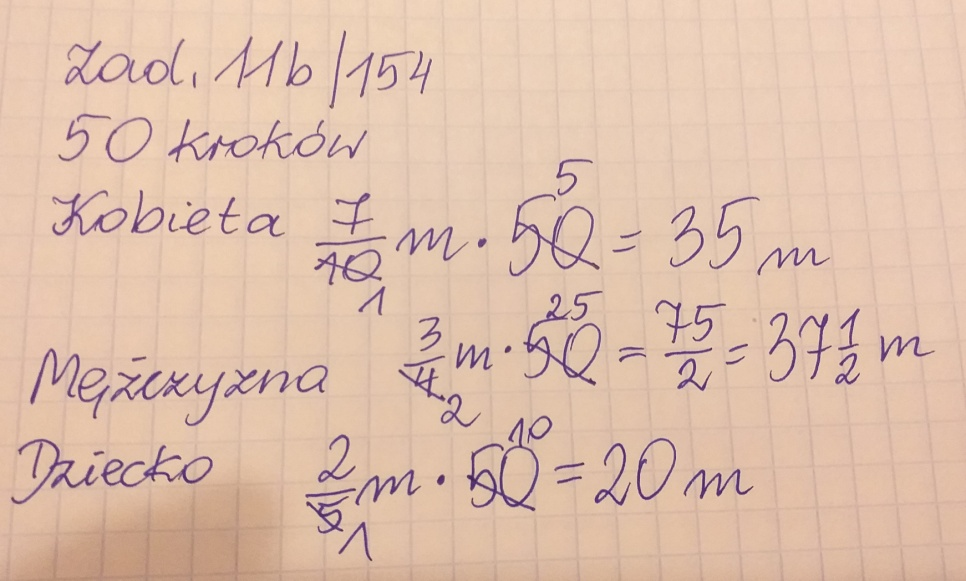 Zad. 11b/154
50 kroków
Kobieta 7/10 m · 50 = 35 m
5
1
Mężczyzna 3/4 m · 50 = 75/2 = 37 1/2 m
25
2
Dziecko 2/5 m · 50 = 20 m
10
1